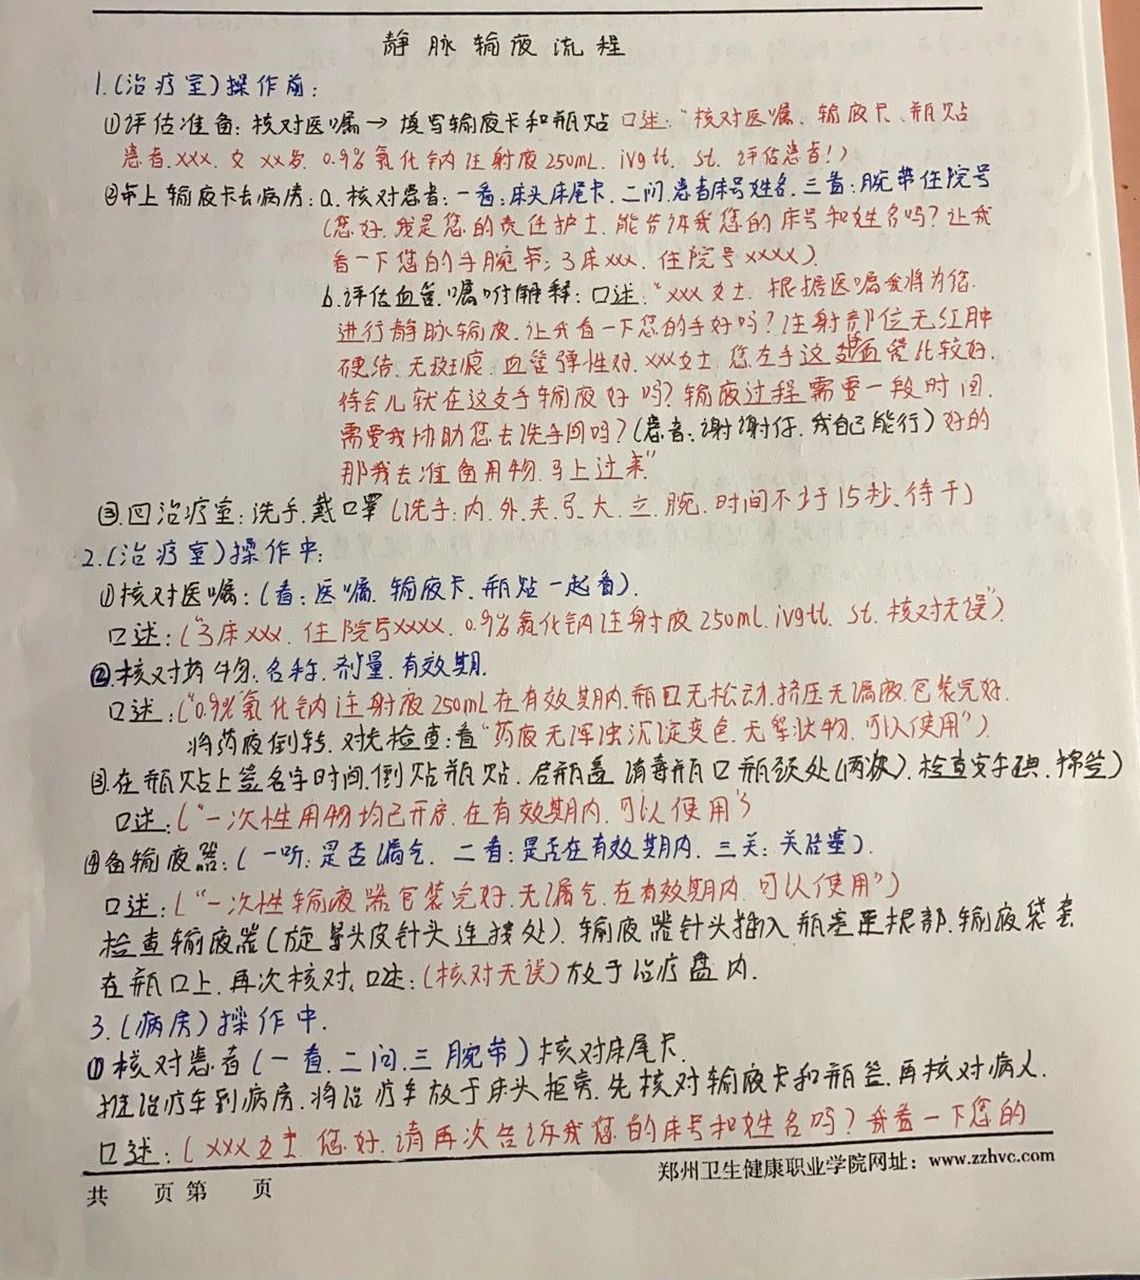 静脉输液流程
1.(治疗室)操作前:
①评估准备:核对医嘱→填写输液卡和瓶贴 口述:"核对医嘱、输液卡、瓶贴
患者.xxx.女 xx岁. 0.9%氯化钠注射液250mL. ivgtt. st. 评估患者!)
②带上输液卡去病房:a.核对患者:一看:床头床尾卡.二问.患者床号姓名.三看:腕带住院号
(您好.我是您的责任护士.能告诉我您的床号和姓名吗?让我
看一下您的手腕带;3床xxx.住院号xxxx).
b.评估血管.嘱咐解释:口述:"xxx女士.根据医嘱我将为您
进行静脉输液.让我看一下您的手好吗?注射部位无红肿
硬结.无斑痕.血管弹性好.xxx女士.您左手这处血管比较好.
待会儿就在这支手输液好吗?输液过程需要一段时间.
需要我协助您去洗手间吗?(患者:谢谢你.我自己能行)好的
那我去准备用物.马上过来"
③.回治疗室:洗手.戴口罩(洗手:内.外.夹.弓.大.立.腕.时间不少于15秒.待干)
2.(治疗室)操作中:
①核对医嘱:(看:医嘱.输液卡.瓶贴一起看).
口述:("3床xxx.住院号xxxx.0.9%氯化钠注射液250mL.ivgtt.st.核对无误").
②.核对药物.名称.剂量.有效期.
口述:("0.9%氯化钠注射液250mL在有效期内.瓶口无松动.挤压无漏液.包装完好.
将药液倒转.对光检查:看"药液无浑浊沉淀变色.无絮状物.可以使用")
③在瓶贴上签名字时间.倒贴瓶贴.启瓶盖 消毒瓶口瓶颈处(两次).检查安尔碘.棉签)
口述:("一次性用物均已开启.在有效期内.可以使用")
④备输液器:(一听:是否漏气.二看:是否在有效期内.三关:关活塞).
口述:("一次性输液器包装完好.无漏气.在有效期内.可以使用")
检查输液器(旋导头皮针头连接处).输液器针头插入瓶塞至根部.输液袋套
在瓶口上.再次核对.口述:(核对无误)放于治疗盘内.
3.(病房)操作中.
①核对患者(一看.二问.三腕带)核对床尾卡.
推治疗车到病房.将治疗车放于床头柜旁.先核对输液卡和瓶签.再核对病人.
口述:(xxx女士.您好.请再次告诉我您的床号和姓名吗?我看一下您的
郑州卫生健康职业学院网址:www.zzhvc.com
共 页第 页